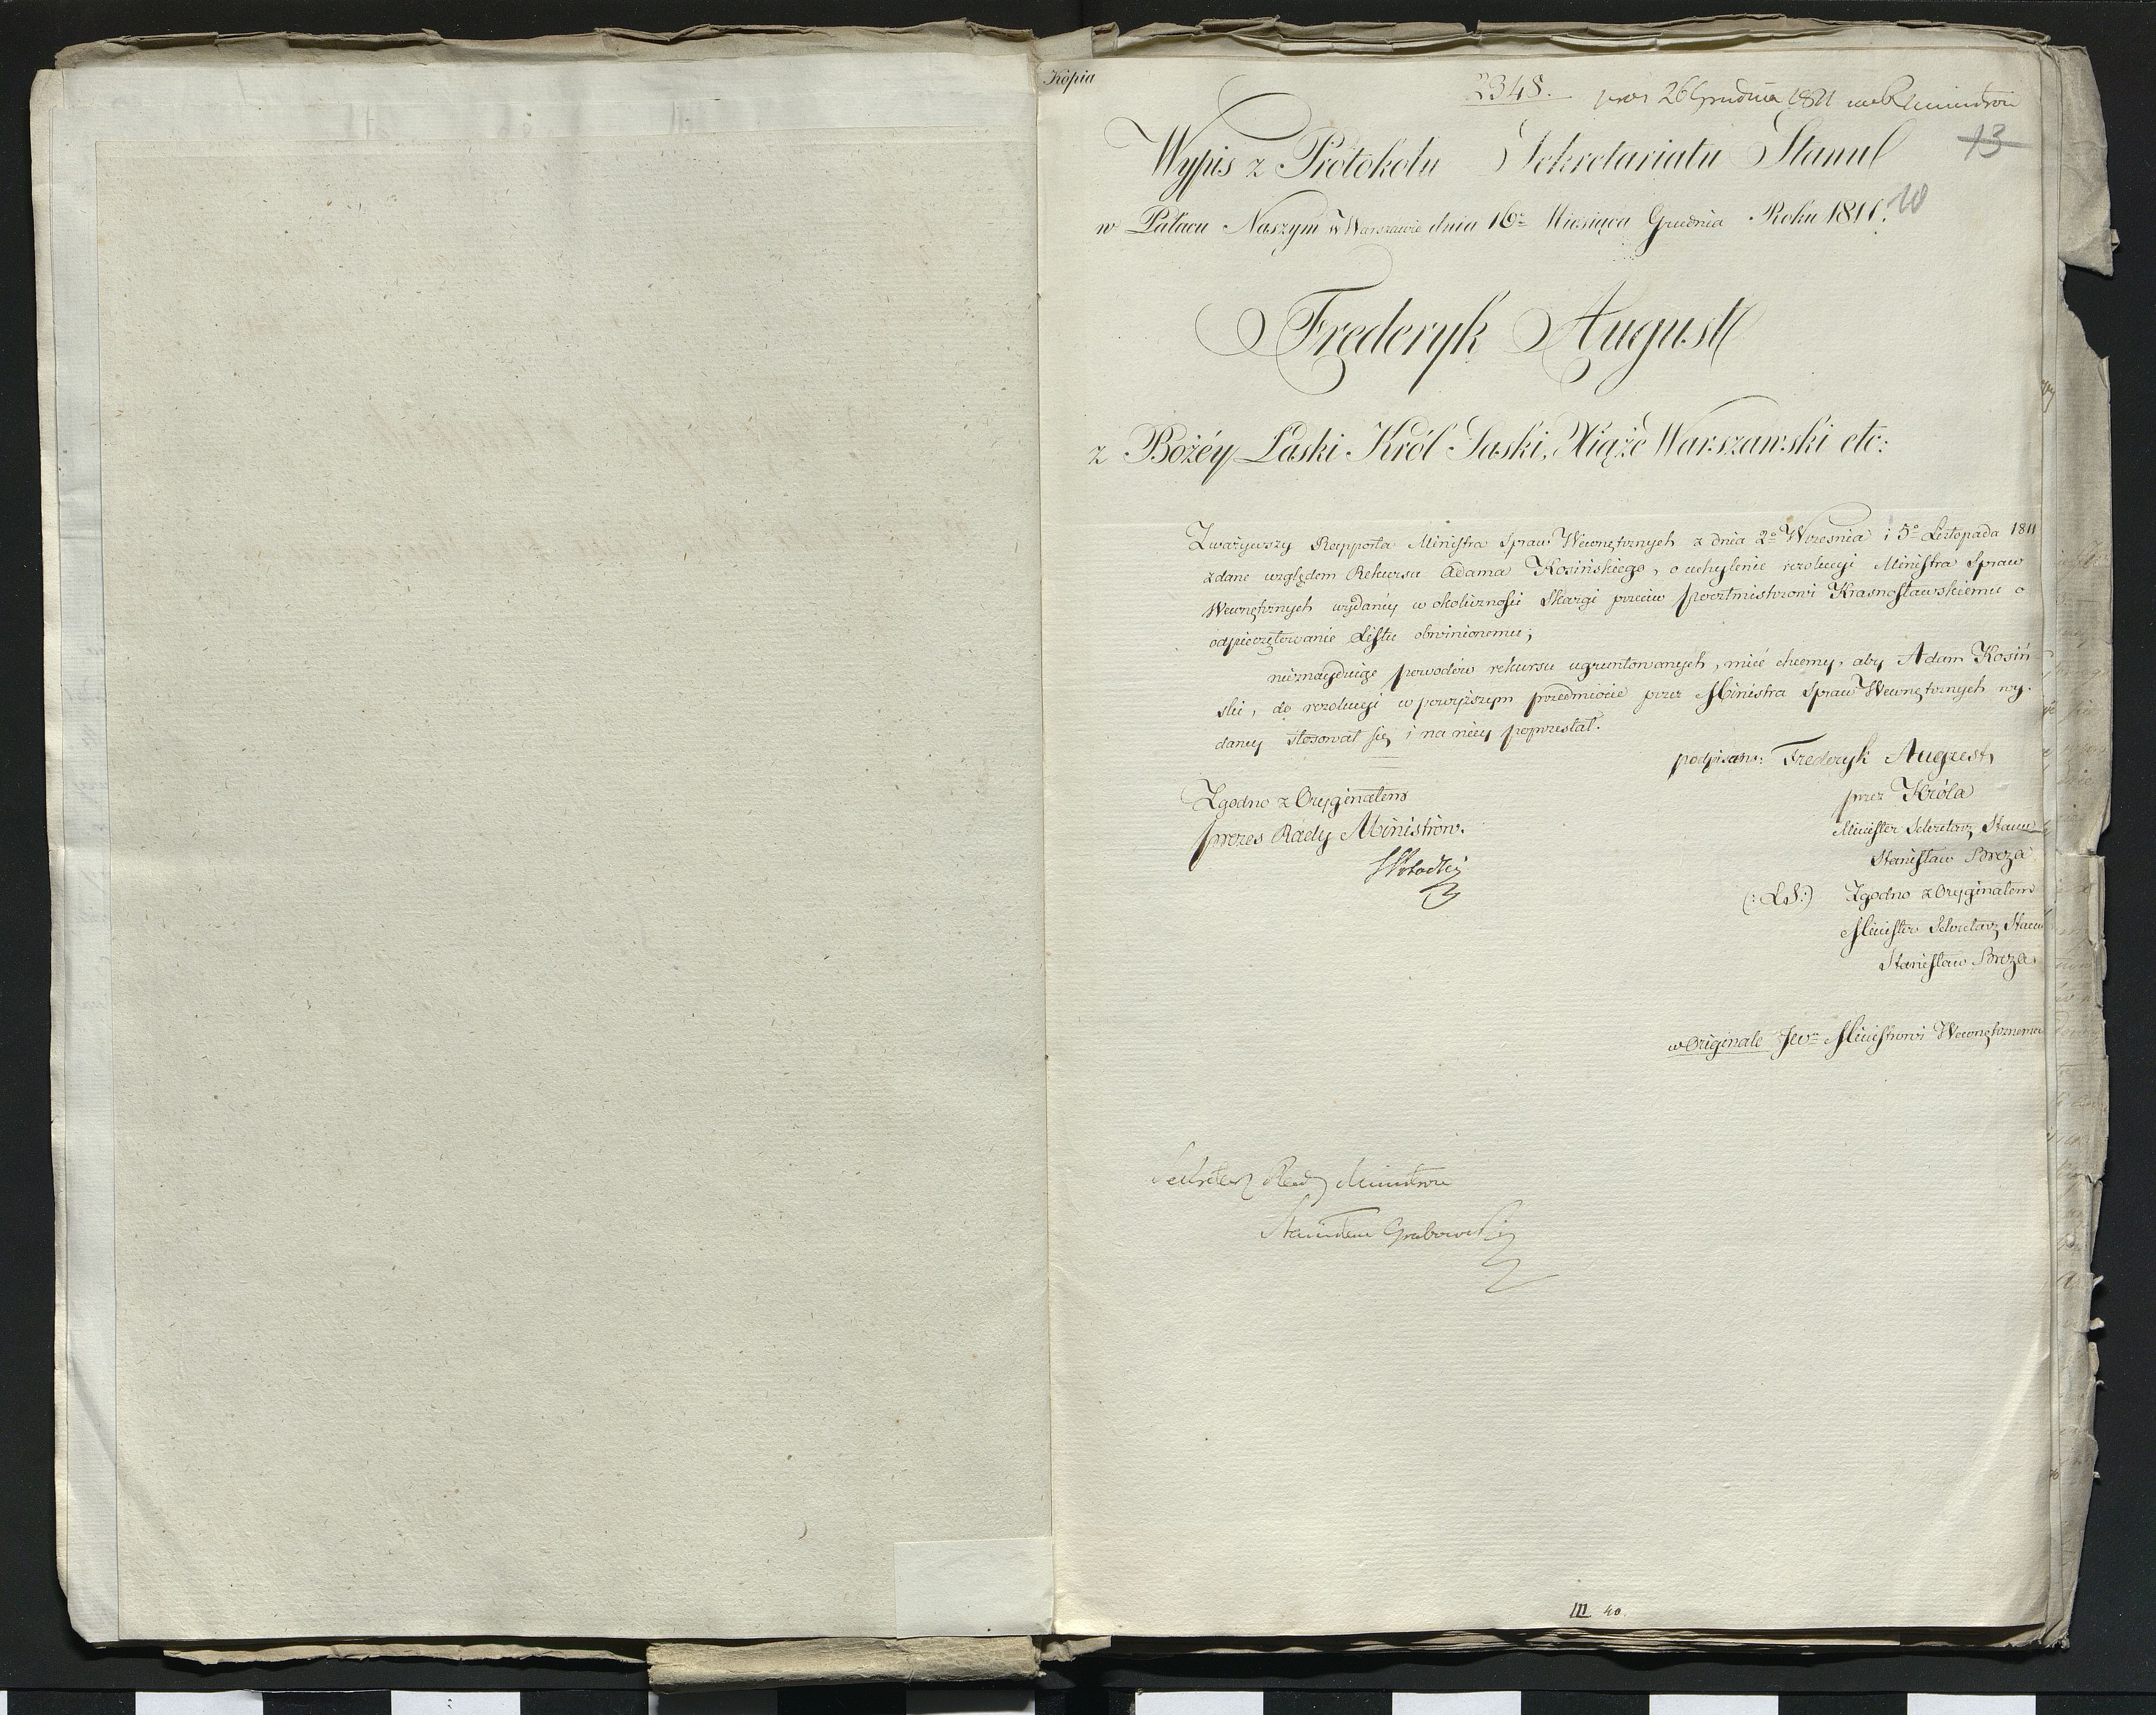 Kópia
2348. prez 26 Grudnia 1811 Ministrów
13
10
Wypis z Protokołu Sekretariatu Stanu
w Pałacu Naszym w Warszawie dnia 16º Miesiąca Grudnia Roku 1811.
Frederyk August
z Bożéy Łaski Król Saski, Xiąże Warszawski etc:
Zważywszy Rapporta Ministra Spraw Wewnętrznych z dnia 2º Września i 5º Listopada 1811
zdane względem Rekursu Adama Kosińskiego, o uchylenie rezolucyi Ministra Spraw
Wewnętrznych wydanéy w okoliczności Skargi przeciw poczt­mistrzowi Krasnostawskiemu o
odpieczętowanie Listu obwinionemu;
nieznayduiąc powodów rekursu ugruntowanych, mieć chcemy, aby Adam Kosiń-
ski, do rezolucyi w powyższym przedmiocie przez Ministra Spraw Wewnętrznych wy-
daney stosował się, i na niéy poprzestał.
podpisano: Frederyk August,
przez Króla
Minister Sekretarz Stanu
Stanisław Breza
(:LS:) Zgodno z Oryginałem
Minister Sekretarz Stanu
Stanisław Breza
Zgodno z Oryginałem
prezes Rady Ministrów.
w Originale Jwº Ministrowi Wewnętrznemu
Sekretarz Rady Ministrów
Stanisław Grabowski
III 40.